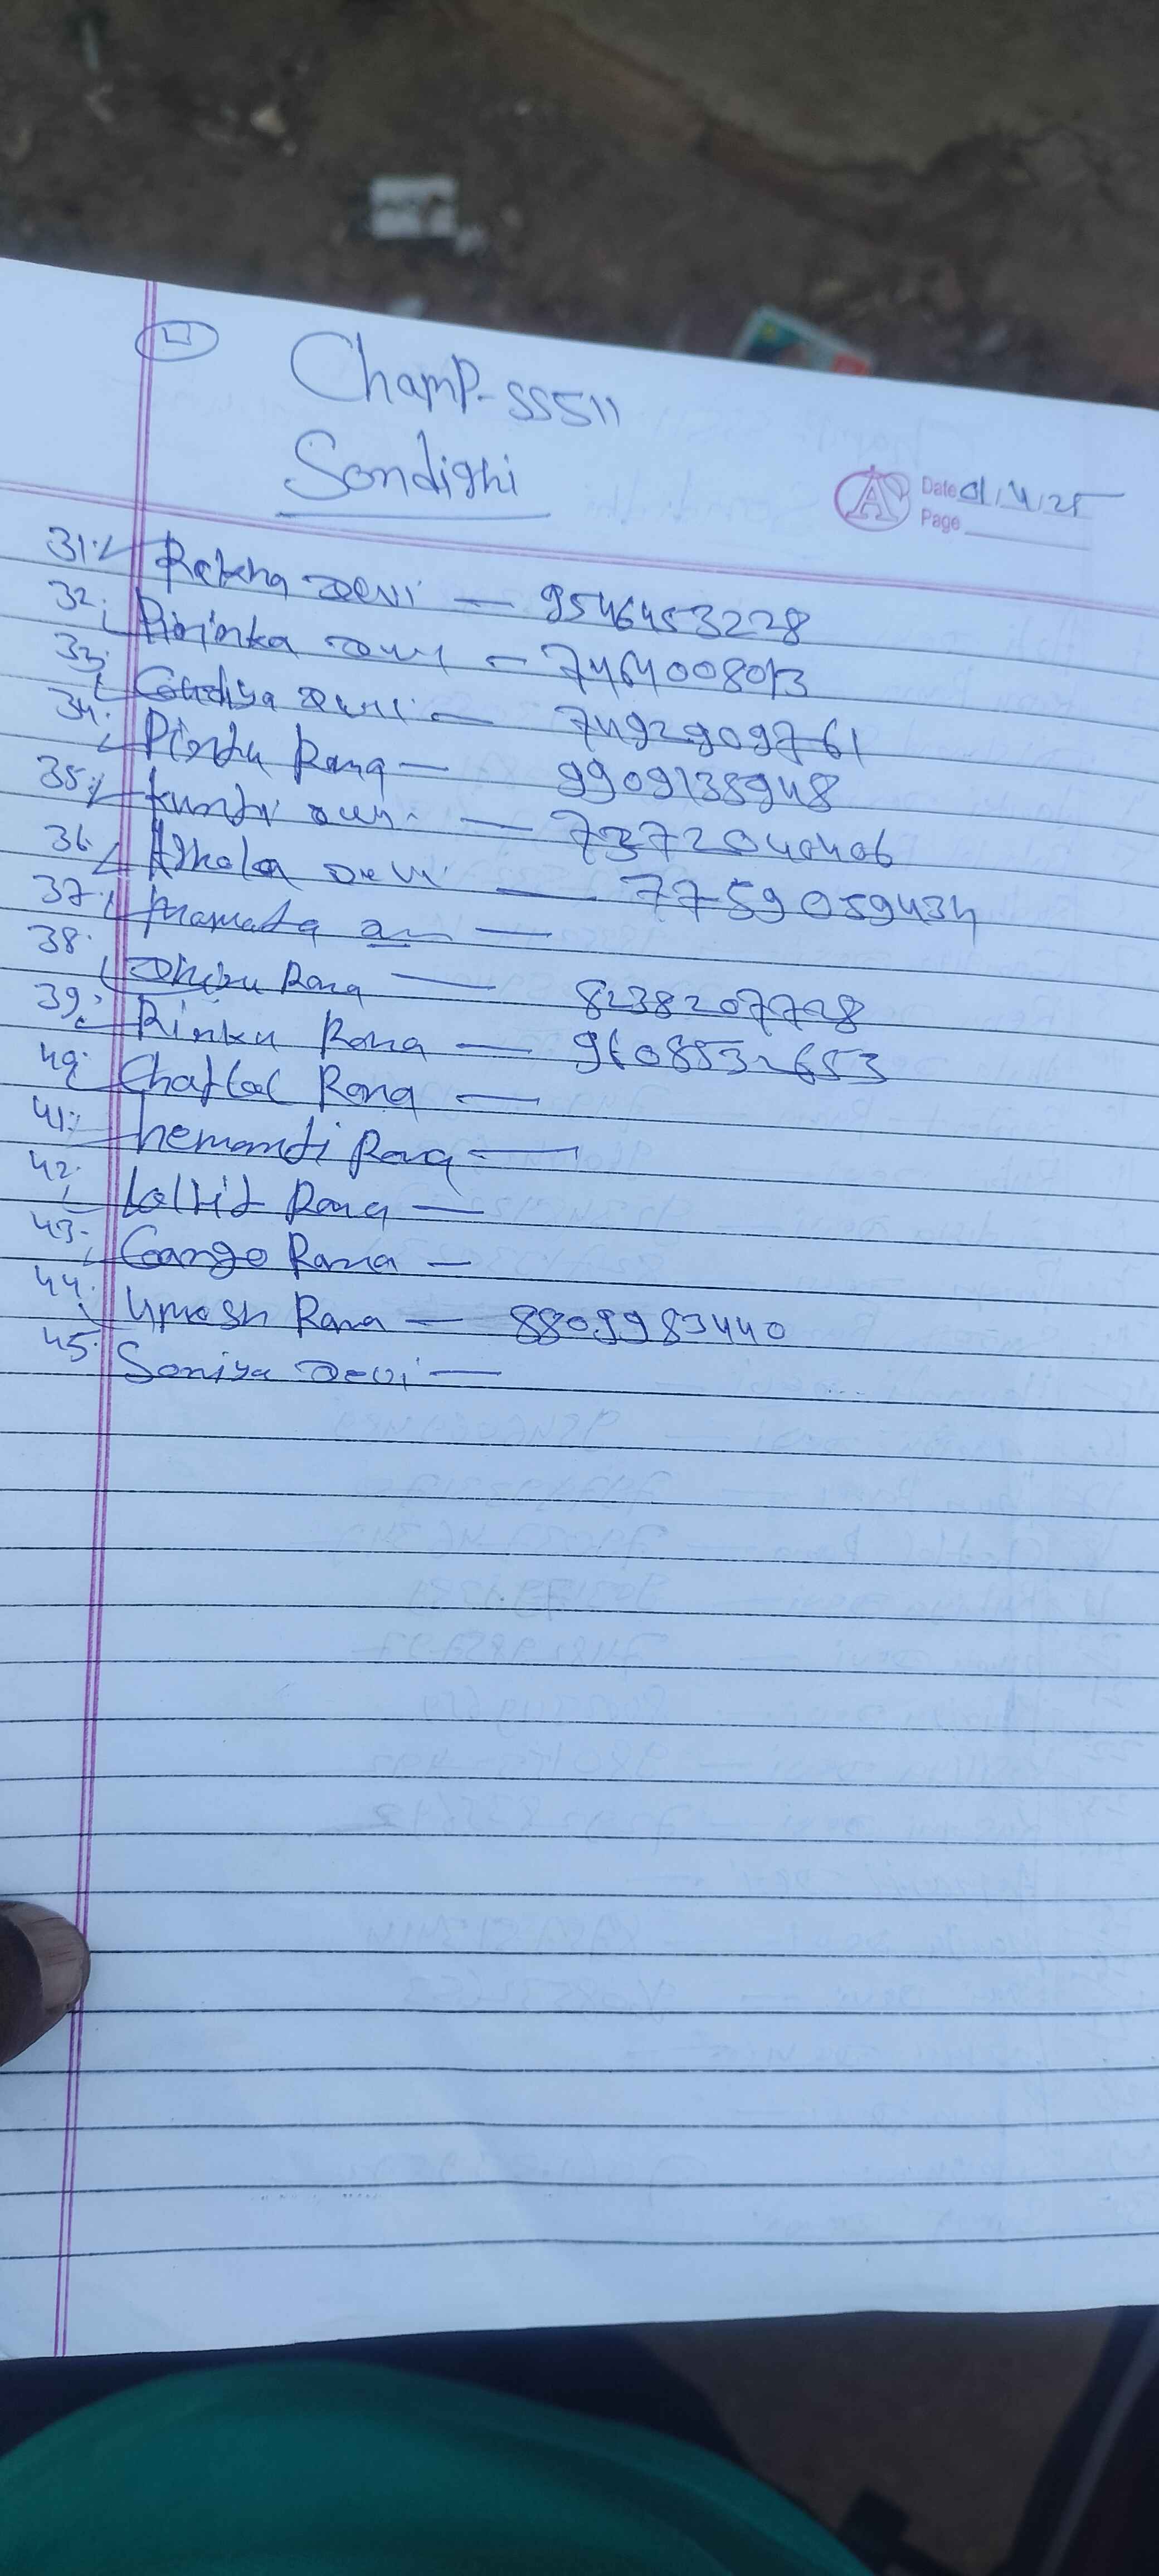 ChamP-SS511
Sondighi
Date 01/4/25
Page
31. Rekha Devi — 9546453228
32. Pirinka Devi — 7464008013
33. Gudiya Devi — 7492909761
34. Pintu Rana — 9909135948
35. Kunti Devi — 7372040406
36. Devi — 7759059434
37. Mamata —
38. Rana — 8238207728
39. Rinku Rana — 9608532653
40. Chatlal Rana —
41. hemanti Rana —
42. Laljit Rana —
43. Gango Rana —
44. Umesh Rana — 8809983440
45. Soniya Devi —